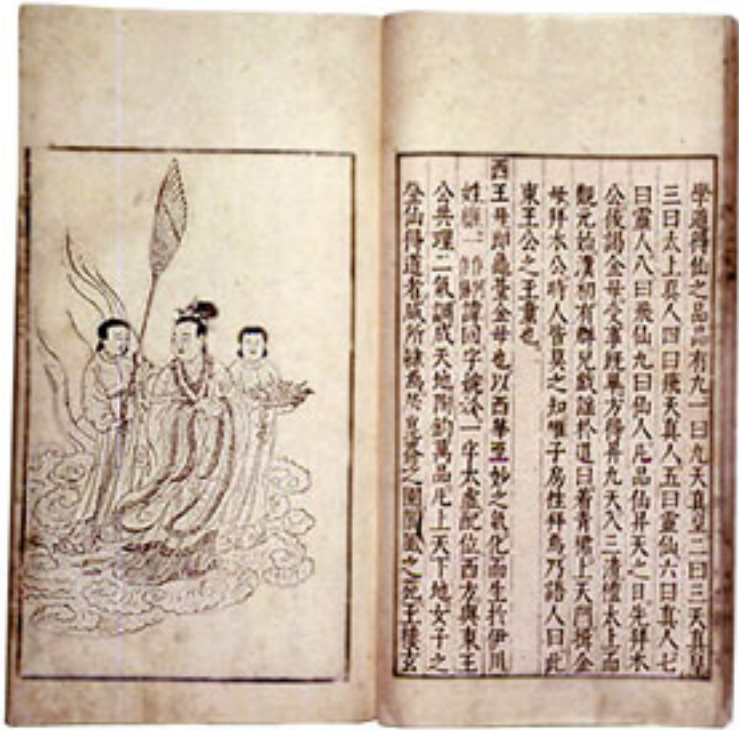 學道得仙之品品有九一曰九天真皇二曰三天真皇
三曰太上真人四曰飛天真人五曰靈仙六曰真人七
曰靈人八曰飛仙九曰仙人凡品仙昇天之日先拜木
公後謁金母受事既畢方得昇九天入三清禮太上而
觀元始漢初有羣兒戲謠於道曰著青裙上天門揖金
母拜木公時人皆莫之知唯子房往拜焉乃語人曰此
東王公之玉童也
西王母即龜臺金母也以西華至妙之氣化而生於伊川
姓諱回字婉妗一字太虛配位西方與東王
公共理二氣調成天地陶鈞萬品凡上天下地女子之
登仙得道者咸所隸焉居崑崙之圃閬風之苑玉樓玄